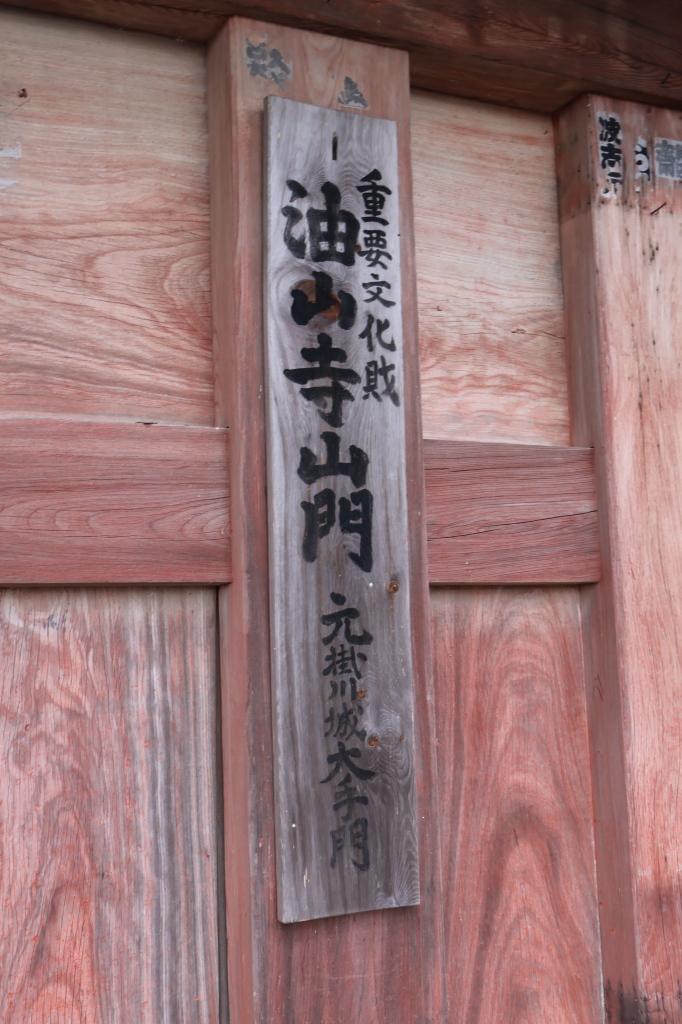 重要文化財
油山寺山門
元掛川城大手門